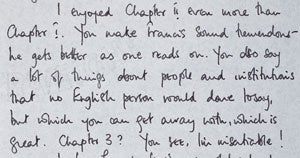 I enjoyed Chapter ii even more than
Chapter i. You make Francis sound tremendous -
he gets better as one reads on. You also say
a lot of things about people and institutions
that no English person would dare to say,
but which you can get away with, which is
great. Chapter 3? You see, I'm insatiable!